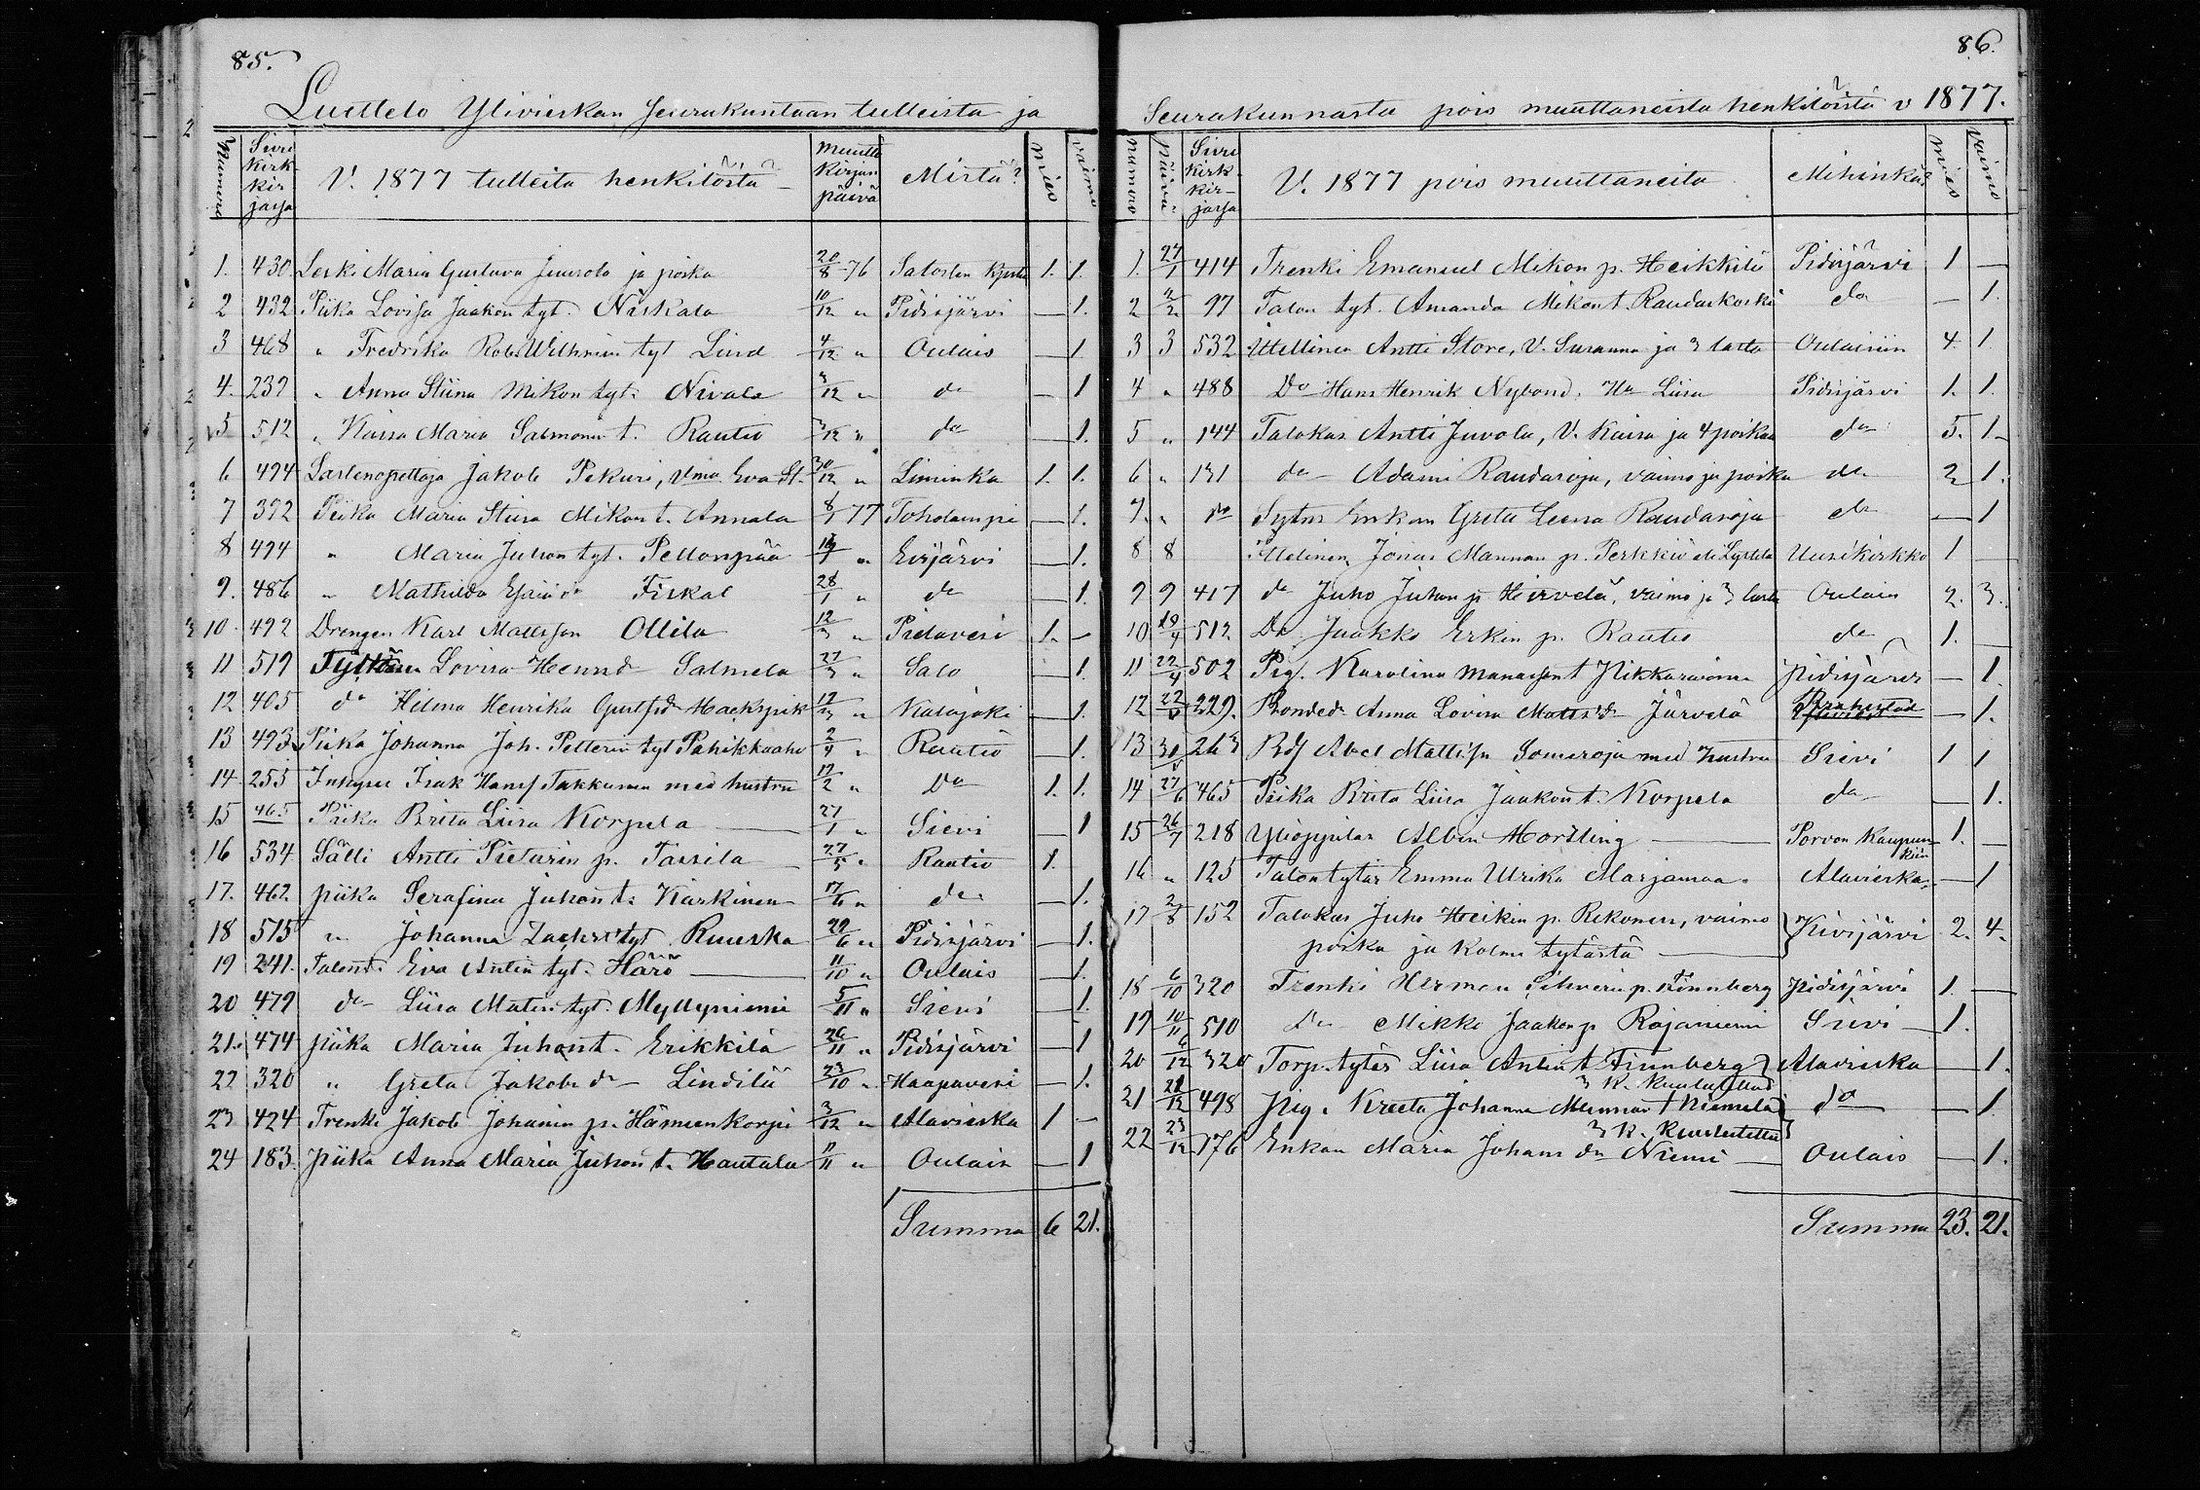 85.
Luettelo Ylivieskan Seurakuntaan tulleista ja
Numero Sivu kirk-kir jassa V. 1877 tulleita henkilöitä Muutto kirjan päivä Mistä? mies vaimo
1. 430. Leski Maria Gustava Juusola ja poika 20/8 76 Saloisten 1. 1.
2 432 Piika Lovisa Jaakon tyt. Niskala 10/12 " Pidisjärvi — 1.
3 468 " Fredrika Rob. Wilhmin tyt Lind 4/12 " Oulais — 1
4. 237 " Anna Stiina Mikon tyt. Nivala 3/12 " do — 1
5 512 " Kaisa Maria Salomonin t. Rautio 3/12 " do — 1.
6 494 Lastenopettaja Jakob Pekuri, Vmo Eva St. 30/12 " Liminka 1. 1.
7 392 Piika Maria Stiina Mikon t. Annala 8/1 77 Toholampi — 1.
8 494 " Maria Juhon tyt. Pellonpää " Evijärvi — 1.
9. 486 " Mathilda Esaiä dr Fiskal 28/1 " do — 1.
10. 492 Drengen Karl Mattsson Ollila 12/3 " Pidavesi 1. —
11 519 Lovisa Henrd Salmela 27/3 " Salo — 1.
12 405 do Hilma Henrika Gustfsdr Hackspik 12/3 " Kalajoki — 1.
13 493 Piika Johanna Joh. Petterin tyt Pahikkaaho 2/4 " Rautio — 1.
14 255 Inhyses Isak Hansf Takkunen med hustru 19/2 " Do 1. 1.
15 465 Piika Brita Liisa Korpela — 27/1 " Sievi — 1
16 534 Sälli Antti Pietarin p. Tassila 27/5 " Rautio 1.
17. 462. piika Serafina Juhon t. Kärkinen 17/6 " do — 1.
18 515 " Johanna tyt Ruuska 29/6 " Pidisjärvi — 1.
19 241. Talont. Eva Antin tyt. Härö — 11/10 " Oulais — 1.
20 479 do Liisa Matin tyt. Myllyniemi 5/11 " Sievi — 1.
21. 474 piika Maria Juhont. Erikkilä 26/11 " Pidisjärvi — 1
22 320 " Greta Jakobs dr — Lindilä 23/10 " Haapavesi — 1.
23 424 Trenki Jakob Johanin p. Hämeenkorpi 3/12 " Alavieska 1 —
24 183. piika Anna Maria Juhon t. Hautala 11/11 " Oulais — 1
Summa 6 21.
86.
Seurakunnasta pois muuttaneista henkilöistä v 1877.
numero päivä Sivu kirk-kir-jassa V. 1877 pois muuttaneita Mihinkä? mies vaimo
1. 27/1 414 Trenki Emanuel Mikon p. Heikkilä Pidisjärvi 1 —
2 2/2 97 Talon tyt. Amanda Mikont. Raudaskoski do — 1.
3 3 532 Itsellinen Antti Store, V. Susanna ja 3 lasta Oulaisiin 4. 1.
4 " 488 Do Hans Henrik Nybond. Liisa Pidisjärvi 1. 1.
5 " 144 Talokas Antti Juvola, V. Kaisa ja 4 poikaa do 5. 1.
6 " 131 do — Adami Raudasoja, vaimo ja poika do 2 1.
7. " Do Sytn. Enkan Greta Leena Raudasoja do — 1
8 8 Itsellinen Jonas Mannan p. Perkkiö Uusikirkko 1 —
9 9 417 do Juho Juhan p. Hirvelä, vaimo ja 3 lasta Oulais 2. 3.
10 19/4 512 Do Jaakko Erkin p. Rautio do 1.
11 22/4 502 Pig. Karolina t Pidisjärvi — 1.
12 229. Bonded. Anna Lovisa Matts dr Järvelä — 1.
13 263 Abel Mattsson Someroja med hustru Sievi 1 1
14 27/6 465 Piika Brita Liisa Jaakon t. Korpela do — 1.
15 26/7 218 Ylioppilas Albin — Porvon Kaupunkiin 1. —
16 " 125 Talontytär Emma Ulrika Marjamaa. Alavieska — 1
17 2/8 152 Talokas Juho Heikin p. Rekonen, vaimo
poika ja kolme tytärtä — } Kivijärvi 2. 4.
18 6/10 320 Trenki Herman p. Finnberg Pidisjärvi 1. —
19 10/11 510 Do Mikko Jaakon p. Rajaniemi Sievi — 1.
20 6/12 320 Torp. tytär Liisa Antin t Finnberg } Alavieska — 1.
3 k. Kuulutettu
21 21/12 498 Pig. Kreeta Johanna t Niemelä do — 1.
3 k. Kuulutettu
22 23/12 176 Enkan Maria Johans dr Niemi — Oulais — 1.
Summa 23. 21.